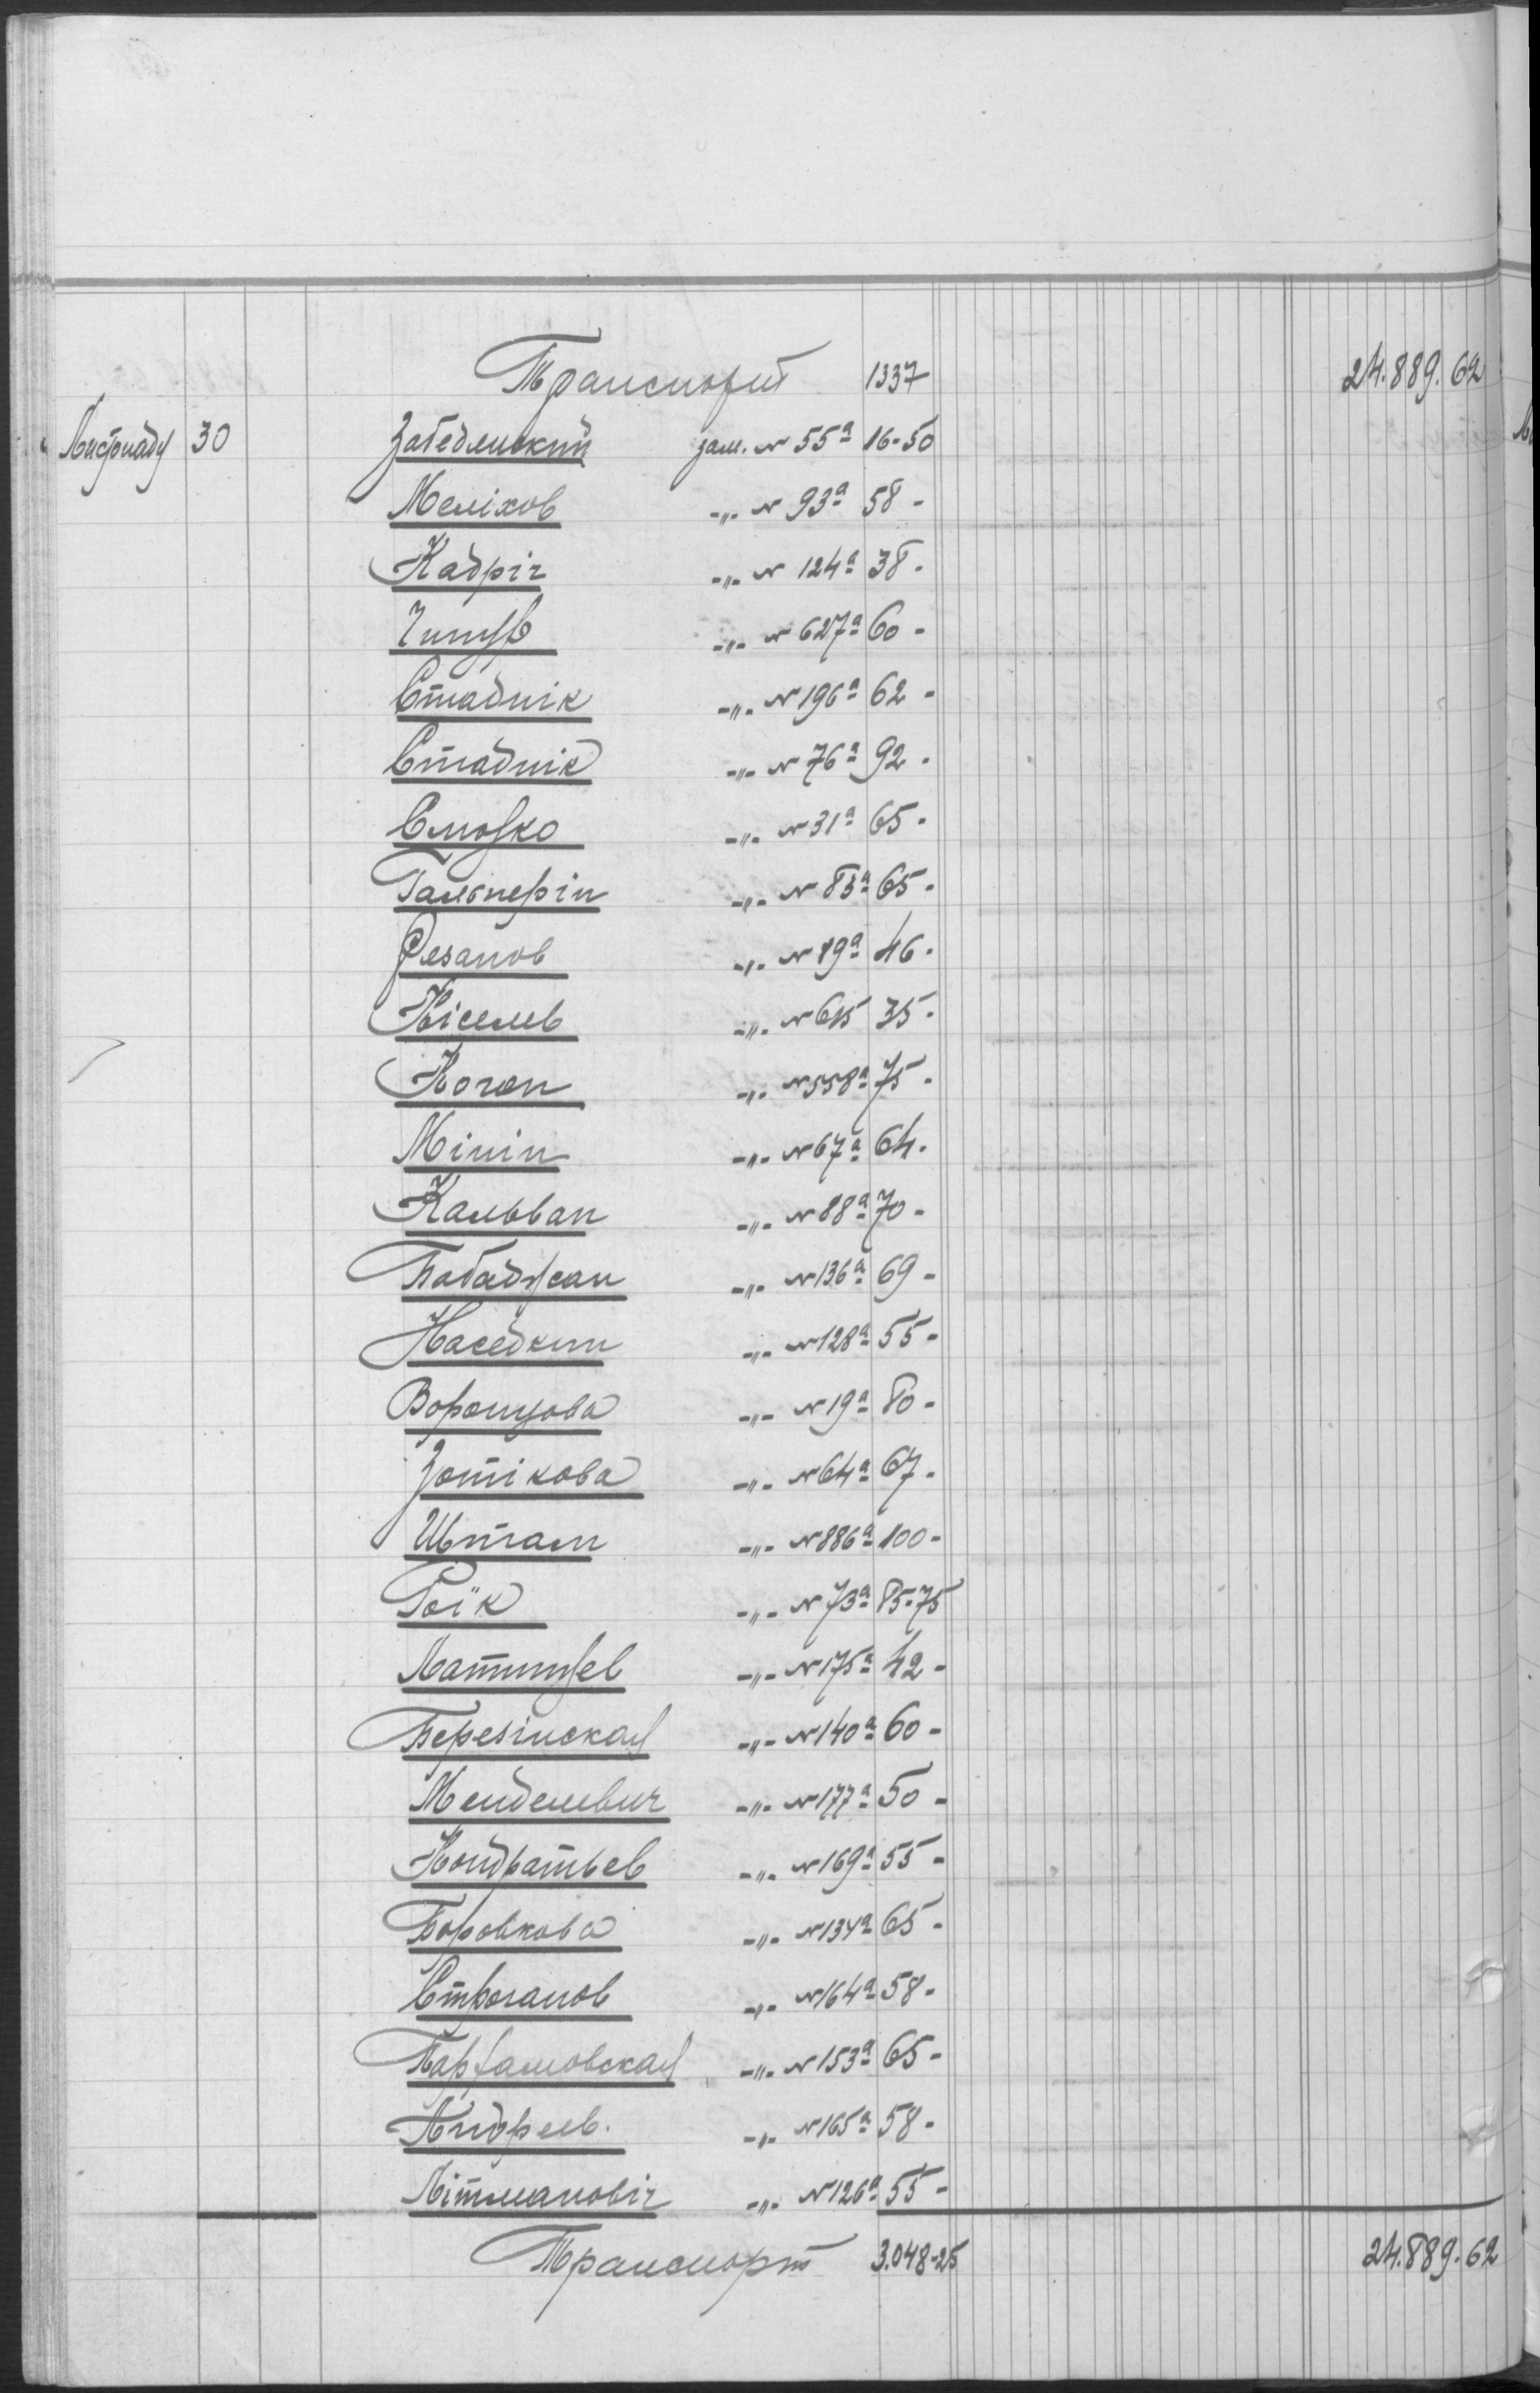 Транспорт 1337 24.889.62
Листпаду 30 Забедлиский зам. № 55а 16-50
Меліхов -„- № 93а 58-
Кадріч -„- № 124а 38-
-„- № 627а 60-
Стаднік -„- № 196а 62-
Стаднік -„- № 76а 92-
-„- № 31а 65-
Гальперін -„- № 83а 65-
Резанов -„- № 89а 46-
Кіселев -„- № 615 35-
Коган -„- № 558а 75-
Мінін -„- № 67а 64-
Кальван -„- № 88а 70-
Бабаджан -„- № 136а 69-
Наседкин -„- № 128а 55-
Воронцова -„- № 19а 80-
Зотікова -„- № 64а 67-
Штам -„- № 886а 100-
Роїк -„- № 73а 85-75
Латишев -„- № 175а 42-
Березінская -„- № 140а 60-
Менделевич -„- № 177а 50-
Кондратьев -„- № 169а 55-
Боровкова -„- № 134а 65-
Строганов -„- № 164а 58-
-„- № 153а 65-
Андреев. -„- № 165а 58-
Літманович -„- № 126а 55-
Транспорт 3.048-25 24.889.62